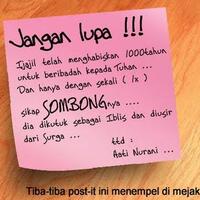 Jangan lupa !!!
Ijajil telah menghabiskan 1000tahun
untuk beribadah kepada Tuhan ...
Dan hanya dengan sekali ( 1x )
sikap SOMBONGnya ....
dia dikutuk sebagai Iblis dan diusir
dari Surga ...
ttd :
Asti Nurani ...
Tiba-tiba post-it ini menempel di mejak